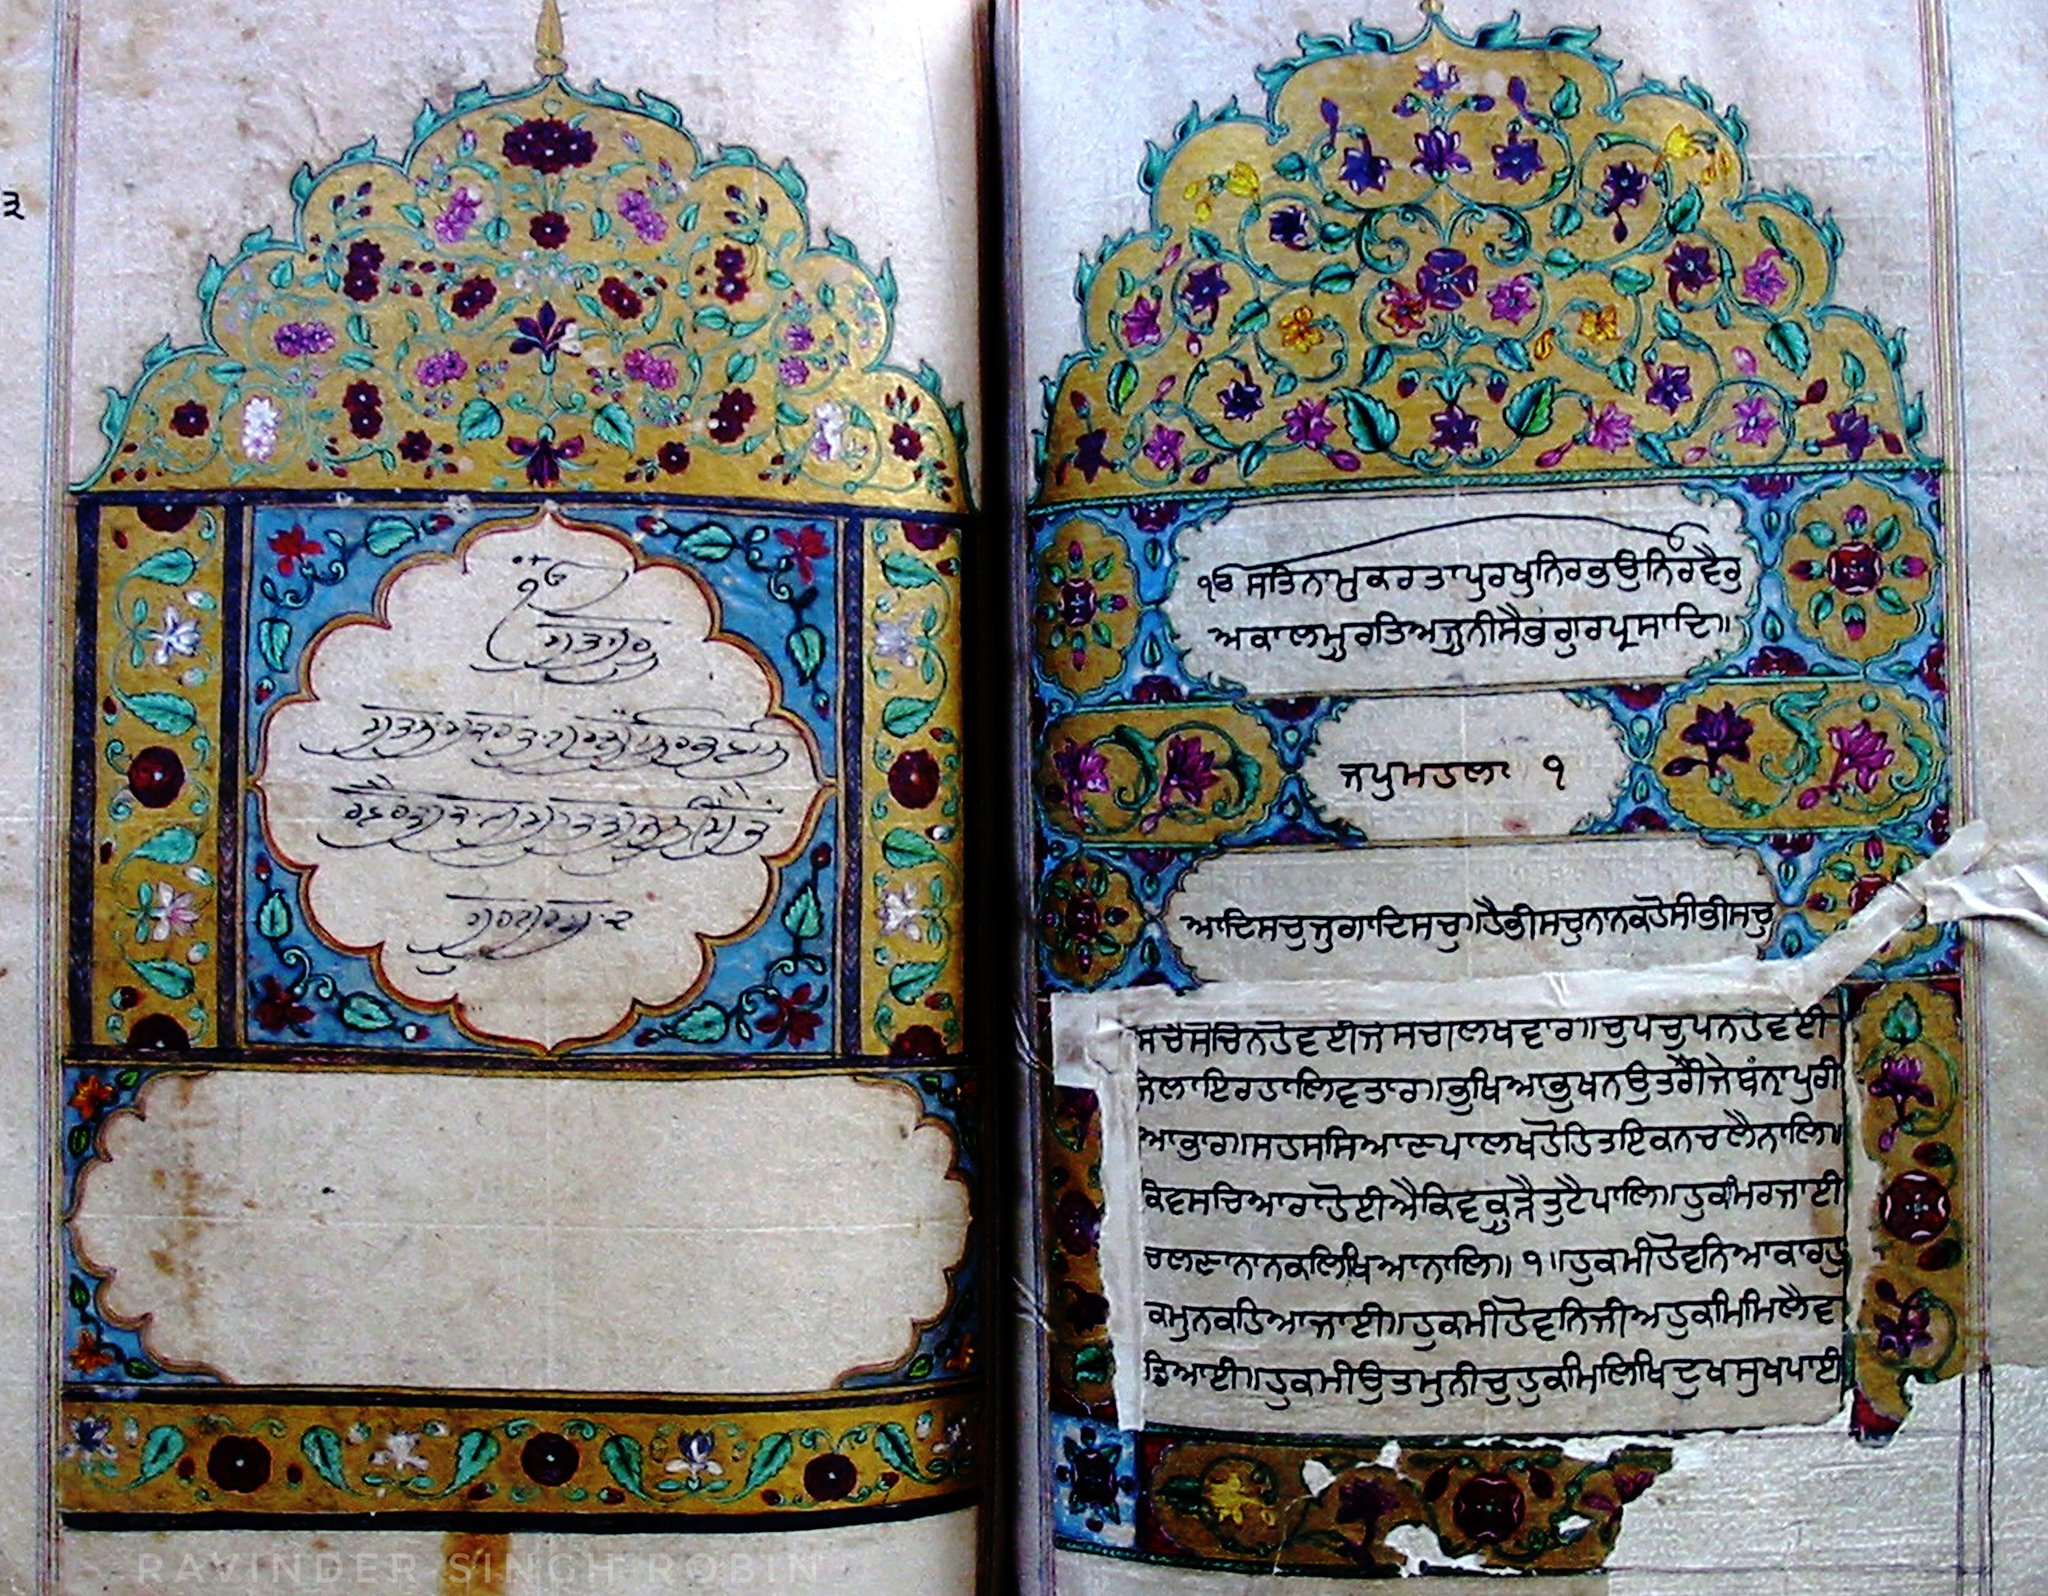 ੩
ੴ
ਸਤਗੁਰ
ੴ ਸਤਿਨਾਮੁਕਰਤਾਪੁਰਖੁਨਿਰਭਉਨਿਰਵੈਰੁ
ਅਕਾਲਮੂਰਤਿਅਜੂਨੀਸੈਭੰਗੁਰਪ੍ਰਸਾਦਿ॥
ਜਪੁਮਹਲਾ ੧
ਆਦਿਸਚੁਜੁਗਾਦਿਸਚੁ॥ਹੈਭੀਸਚੁਨਾਨਕਹੋਸੀਭੀਸਚੁ
ਸੋਚੈਸੋਚਿਨਹੋਵਈਜੇਸੋਚੀਲਖਵਾਰ॥ਚੁਪਚੁਪਨਹੋਵਈ
ਜੇਲਾਇਰਹਾਲਿਵਤਾਰ॥ਭੁਖਿਆਭੁਖਨਉਤਰੀਜੇਬੰਨਾਪੁਰੀ
ਆਭਾਰ॥ਸਹਸਸਿਆਣਪਾਲਖਹੋਹਿਤਇਕਨਚਲੈਨਾਲਿ॥
ਕਿਵਸਚਿਆਰਾਹੋਈਐਕਿਵਕੂੜੈਤੁਟੈਪਾਲਿ॥ਹੁਕਮਿਰਜਾਈ
ਚਲਣਾਨਾਨਕਲਿਖਿਆਨਾਲਿ॥ ੧॥ਹੁਕਮੀਹੋਵਨਿਆਕਾਰਹੁ
ਕਮੁਨਕਹਿਆਜਾਈ॥ਹੁਕਮੀਹੋਵਨਿਜੀਅਹੁਕਮਿਮਿਲੈਵ
ਡਿਆਈ॥ਹੁਕਮੀਉਤਮੁਨੀਚੁਹੁਕਮਿਲਿਖਿਦੁਖਸੁਖਪਾਈ
RAVINDER SINGH ROBIN